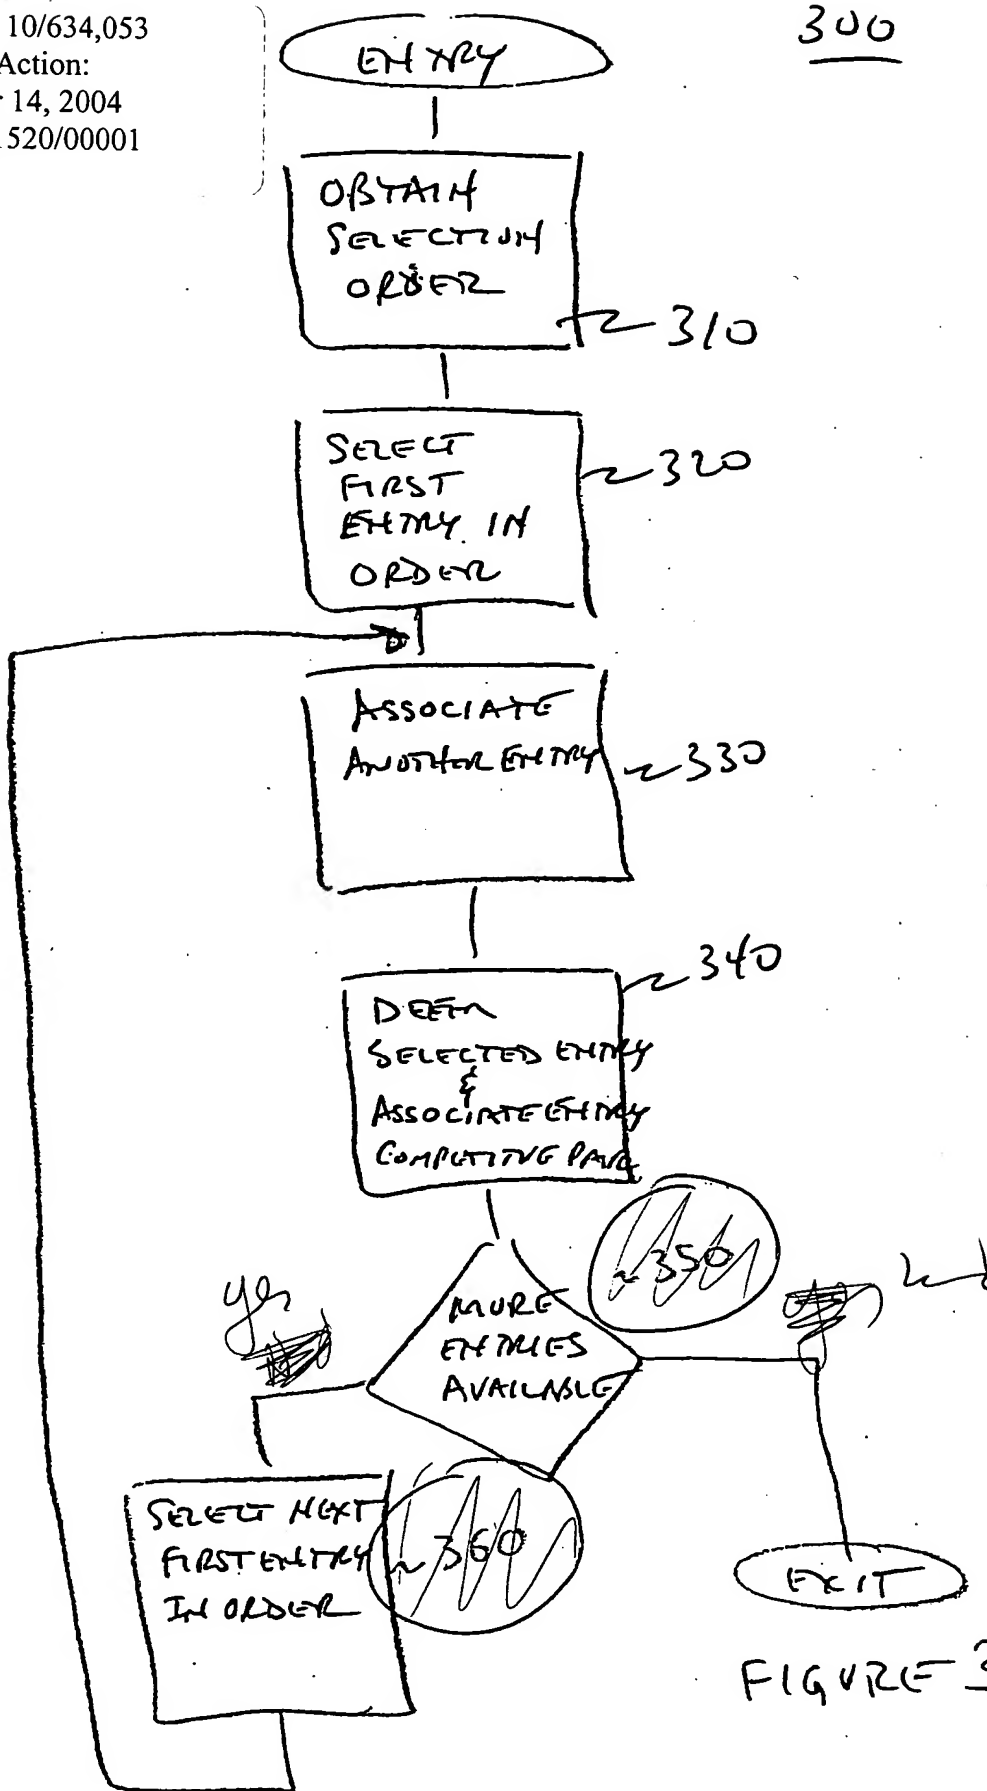 10/634,053
Action:
14, 2004
520/00001
300
ENTRY
OBTAIN
SELECTION
ORDER
310
SELECT
FIRST
ENTRY IN
ORDER
320
ASSOCIATE
ANOTHER ENTRY
330
340
DEEM
SELECTED ENTRY
&
ASSOCIATE ENTRY
COMPETITIVE PAIR
350
yes
MORE
ENTRIES
AVAILABLE
SELECT NEXT
FIRST ENTRY
IN ORDER
360
EXIT
FIGURE 3